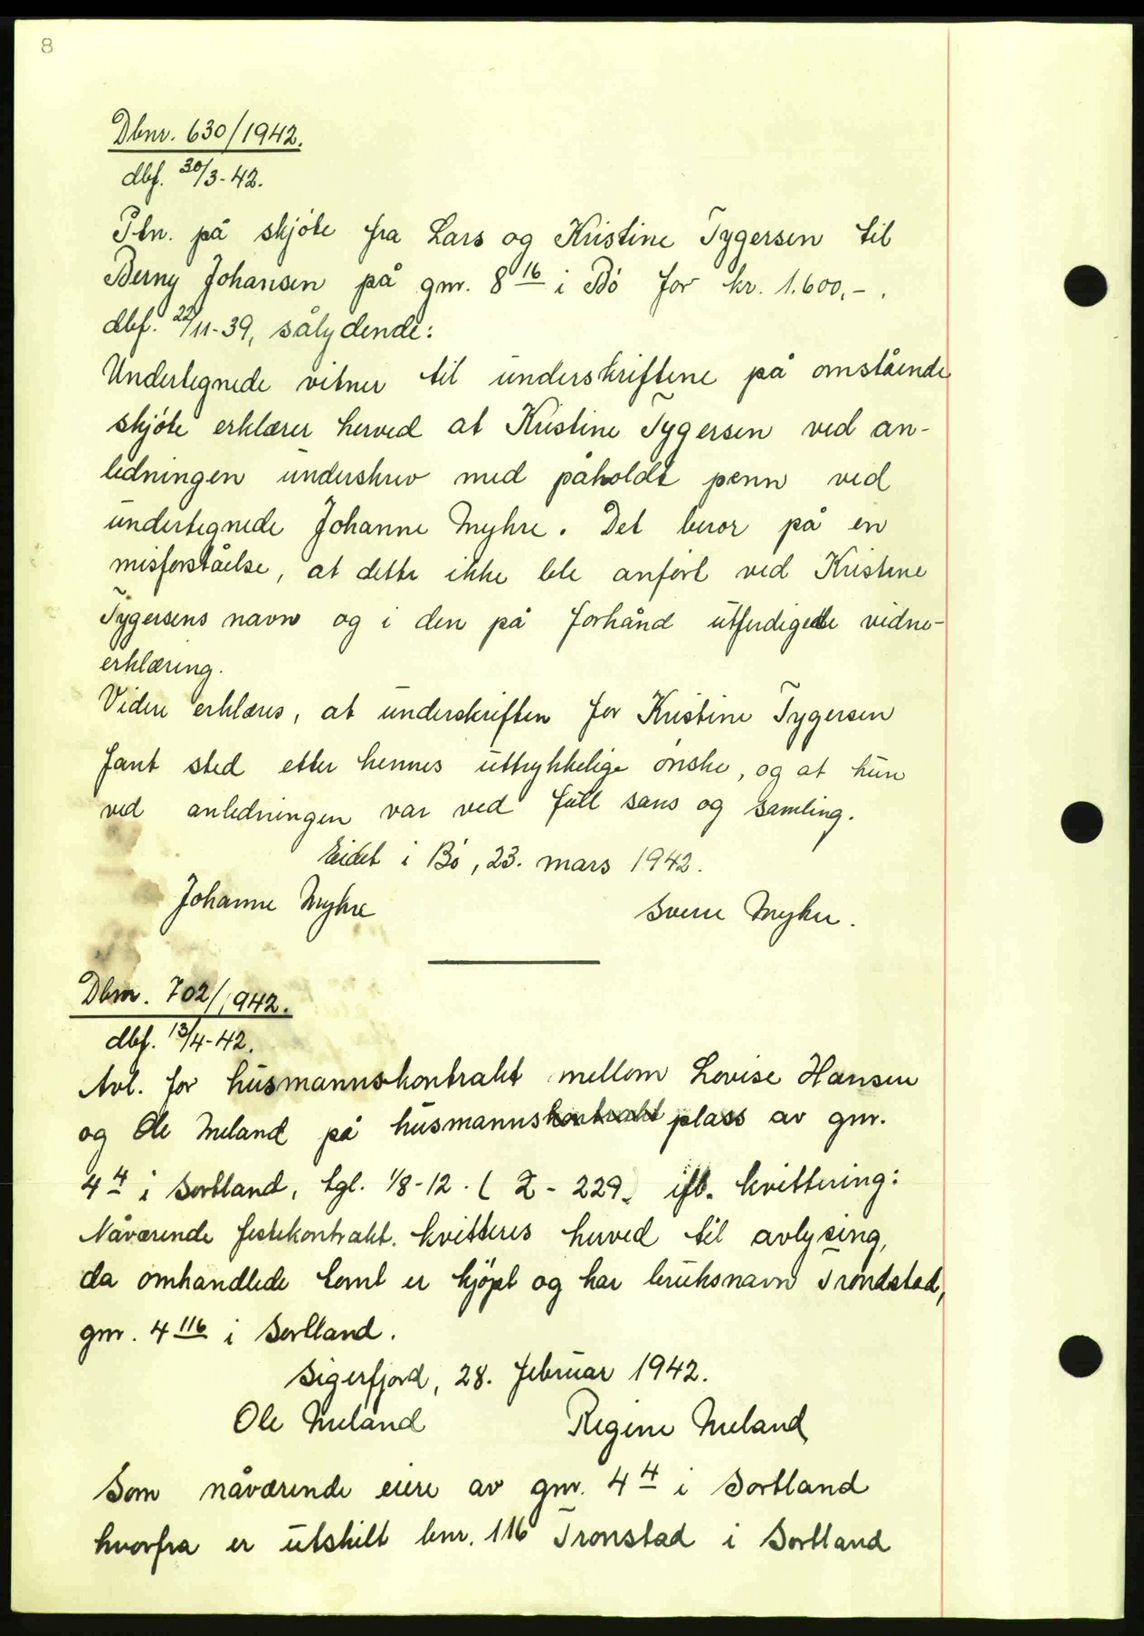 8
Dbnr. 630/1942.
dbf. 30/3-42.
Ptn. på skjøte fra Lars og Kristine Tygersen til
Berny Johansen på gnr. 8 16 i Bø for kr. 1.600,-.
dbf. 22/11-39, sålydende:
Undertegnede vitner til underskriftene på omstående
skjøte erklærer herved at Kristine Tygersen ved an-
ledningen underskrev med påholdt penn ved
undertegnede Johanne Myhre. Det beror på en
misforståelse, at dette ikke ble anført ved Kristine
Tygersens navn og i den på forhånd utferdigede vidne-
erklæring.
Videre erklæres, at underskriften for Kristine Tygersen
fant sted etter hennes uttrykkelige ønske, og at hun
ved anledningen var ved full sans og samling.
Eidet i Bø, 23. mars 1942.
Johanne Myhre Sverre Myhre.
Dbnr. 702/1942.
dbf. 13/4-42.
Avl. for husmannskontrakt mellom Lovise Hansen
og Ole Meland på husmannskontrakt plass av gnr.
4 4 i Sortland, tgl. 1/8-12. ( Z - 229. ifl. kvittering:
Nåværende festekontrakt. kvitteres herved til avlysing,
da omhandlede tomt er kjøpt og har bruksnavn Trondstad,
gnr. 4 116 i Sortland.
Sigerfjord, 28. februar 1942.
Ole Meland Regine Meland
Som nåværende eiere av gnr. 4 4 i Sortland
hvorfra er utskilt bnr. 116 Tronstad i Sortland